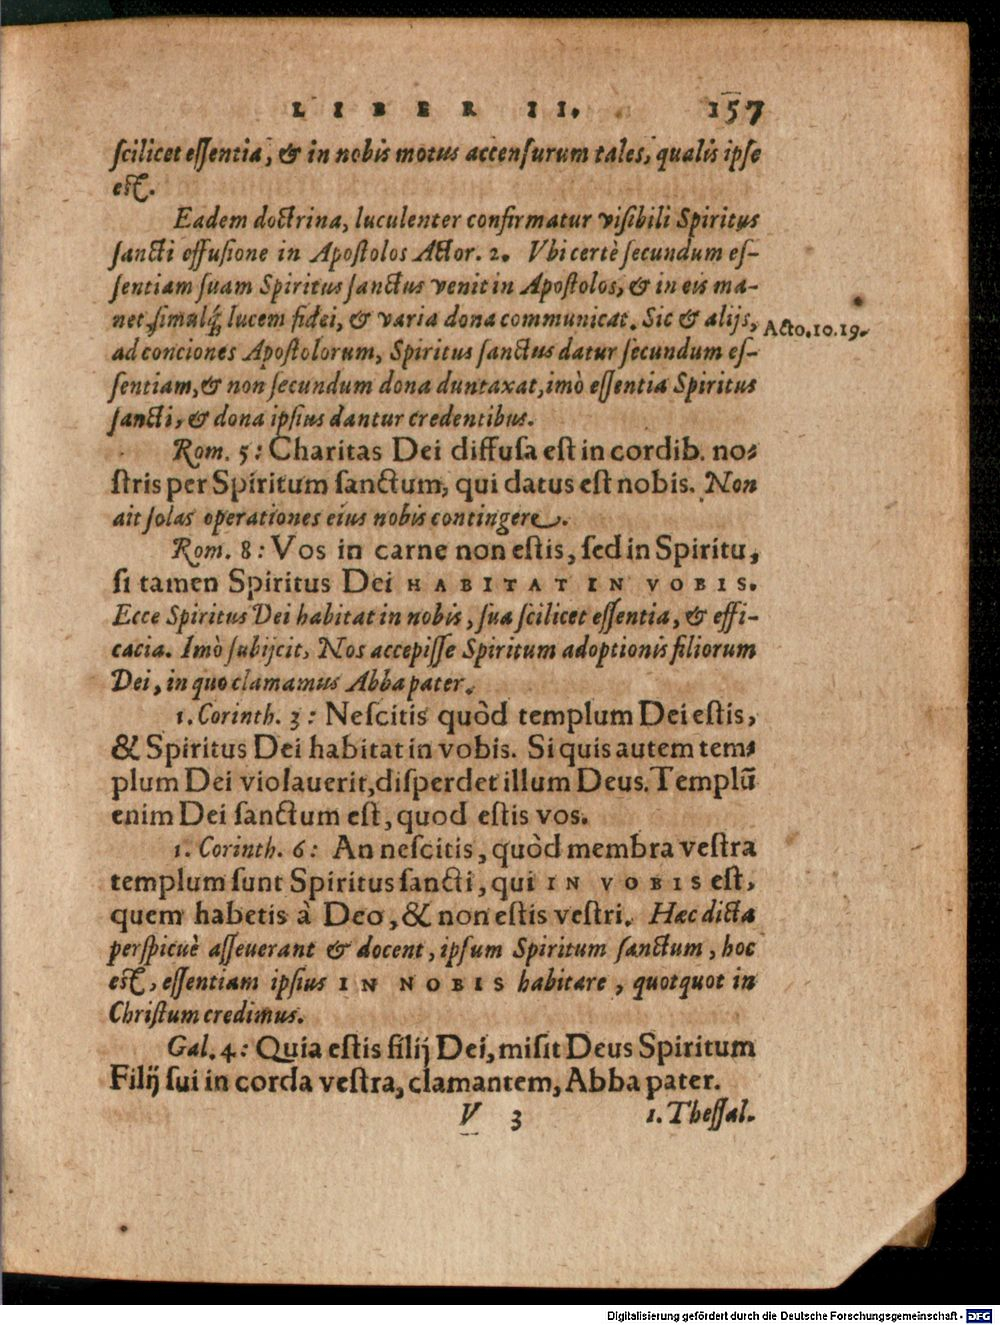 LIBER II. 157
ſcilicet eſſentia, & in nobis motus accenſurum tales, qualis ipſe
eſt.
Eadem doctrina, luculenter confirmatur viſibili Spiritus
ſancti effuſione in Apoſtolos Actor. 2. Vbi certè ſecundum eſ-
ſentiam ſuam Spiritus ſanctus venit in Apoſtolos, & in eis ma-
net, ſimulq́; lucem fidei, & varia dona communicat. Sic & alijs,
Acto.10.19.
ad conciones Apoſtolorum, Spiritus ſanctus datur ſecundum eſ-
ſentiam, & non ſecundum dona duntaxat, imò eſſentia Spiritus
ſancti, & dona ipſius dantur credentibus.
Rom. 5: Charitas Dei diffuſa eſt in cordib. no-
ſtris per Spiritum ſanctum, qui datus eſt nobis. Non
ait ſolas operationes eius nobis contingere.
Rom. 8: Vos in carne non eſtis, ſed in Spiritu,
ſi tamen Spiritus Dei HABITAT IN VOBIS.
Ecce Spiritus Dei habitat in nobis, ſua ſcilicet eſſentia, & effi-
cacia. Imò ſubijcit, Nos accepiſſe Spiritum adoptionis filiorum
Dei, in quo clamamus Abba pater.
1. Corinth. 3: Neſcitis quòd templum Dei eſtis,
& Spiritus Dei habitat in vobis. Si quis autem tem-
plum Dei violauerit, diſperdet illum Deus. Templū
enim Dei ſanctum eſt, quod eſtis vos.
1. Corinth. 6: An neſcitis, quòd membra veſtra
templum ſunt Spiritus ſancti, qui IN VOBIS eſt,
quem habetis à Deo, & non eſtis veſtri. Hæc dicta
perſpicuè aſſeuerant & docent, ipſum Spiritum ſanctum, hoc
eſt, eſſentiam ipſius IN NOBIS habitare, quotquot in
Chriſtum credimus.
Gal. 4: Quia eſtis filij Dei, miſit Deus Spiritum
Filij ſui in corda veſtra, clamantem, Abba pater.
V 3 1. Theſſal.
Digitalisierung gefördert durch die Deutsche Forschungsgemeinschaft - DFG